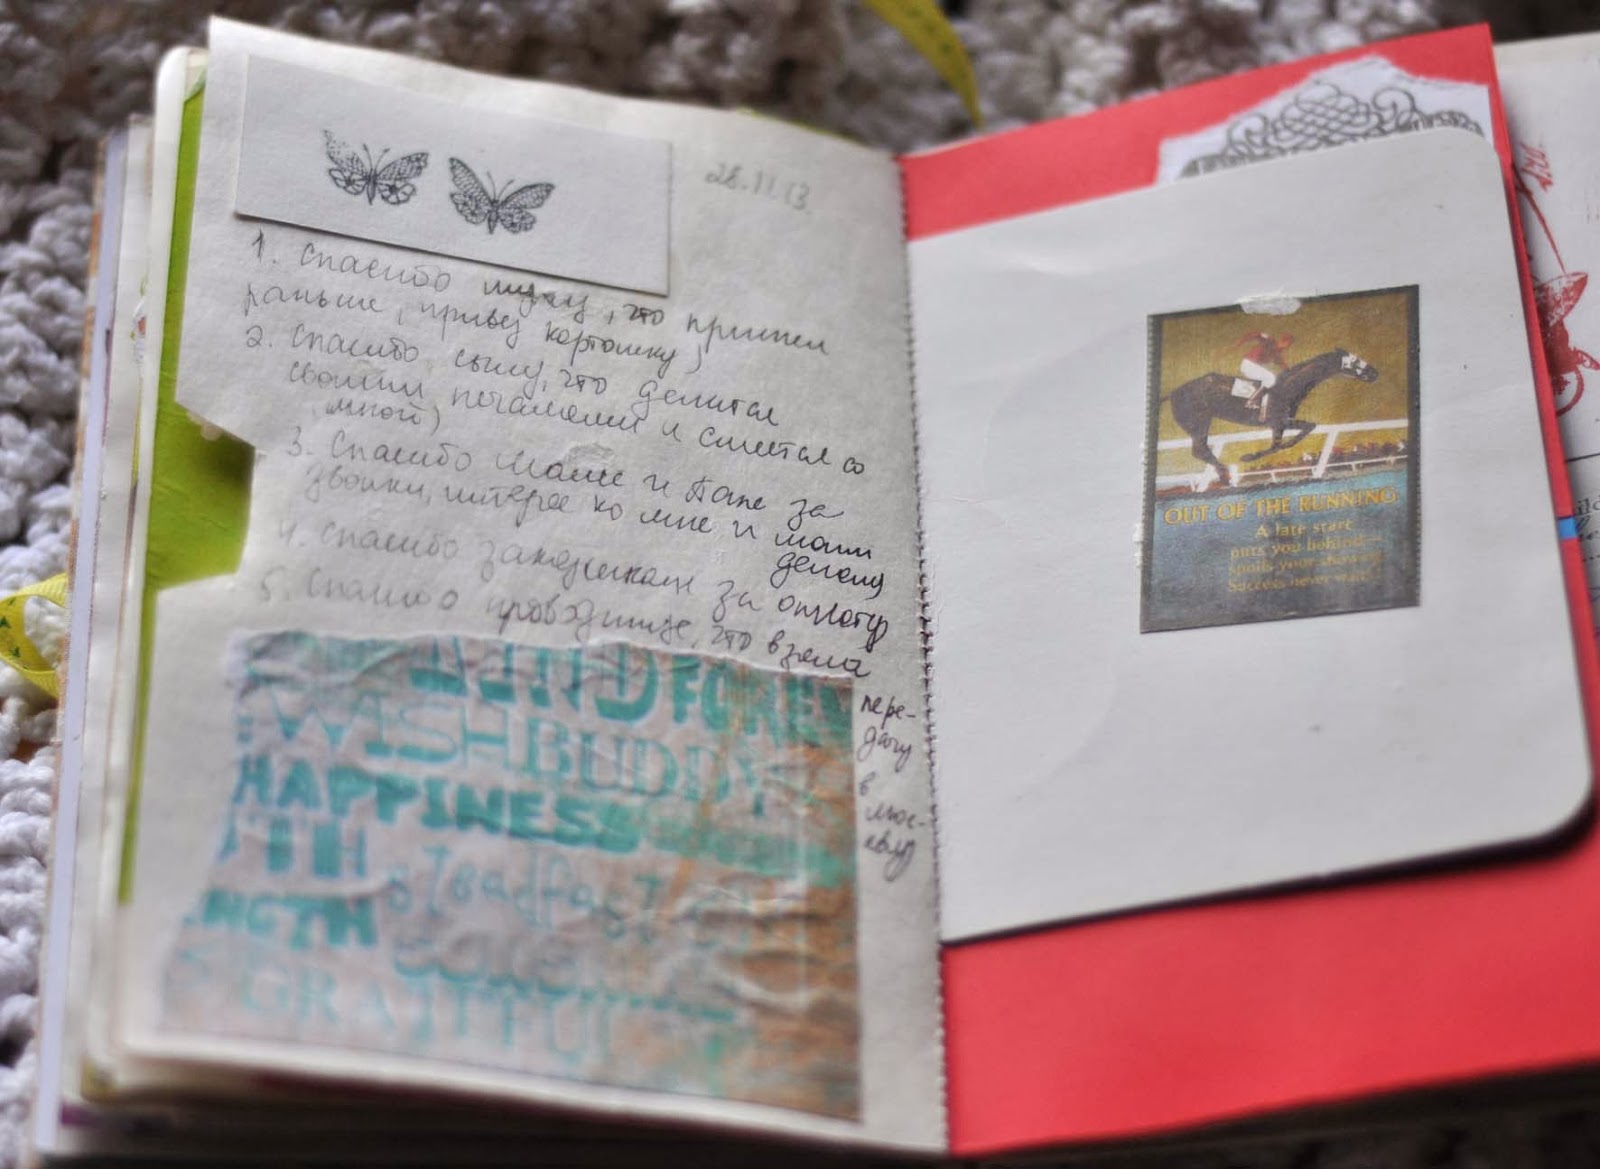 28.11.13
1. Спасибо мужу, что пришел
раньше, привез картошку)
2. Спасибо сыну, что делится
своими печалями и смеется со
мной)
3. Спасибо маме и папе за
звонки, интерес ко мне и моим
делам
4. Спасибо заказчикам за оплату
5. Спасибо проводнице, что взяла
пере-
дачу
в
Мос-
кву
FORE
WISH BUDDY
HAPPINESS
TH
steadfast
NGTH
GRATITU
OUT OF THE RUNNING
A late start
puts you behind—
spoils your showing
Success never waits